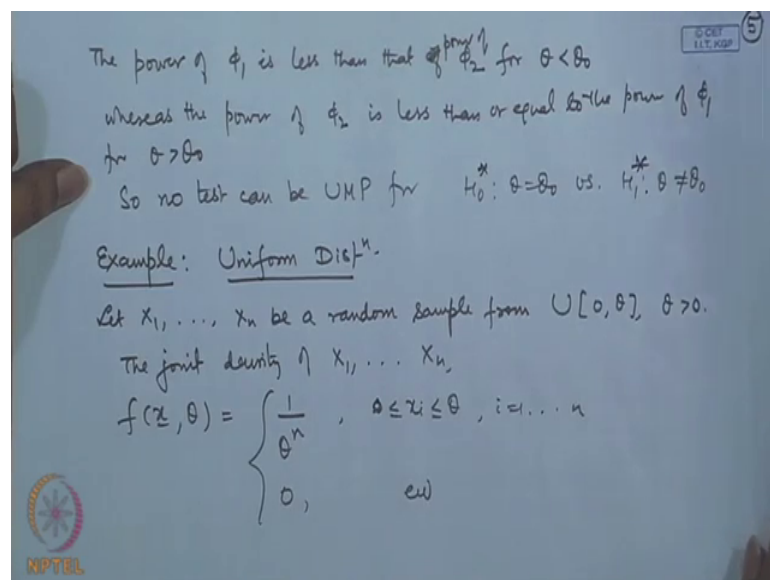 The power of ϕ₁ is less than that power of ϕ₂ for θ < θ₀
whereas the power of ϕ₂ is less than or equal to the power of ϕ₁
for θ > θ₀
So no test can be UMP for H₀*: θ = θ₀ vs. H₁*: θ ≠ θ₀
Example: Uniform Distⁿ.
Let X₁, ..., Xₙ be a random sample from U[0, θ], θ > 0.
The joint density of X₁, ... Xₙ,
f(x, θ) = { 1/θⁿ , 0 ≤ xᵢ ≤ θ , i = 1 ... n
0, ew
© CET
I.I.T. KGP
5
NPTEL